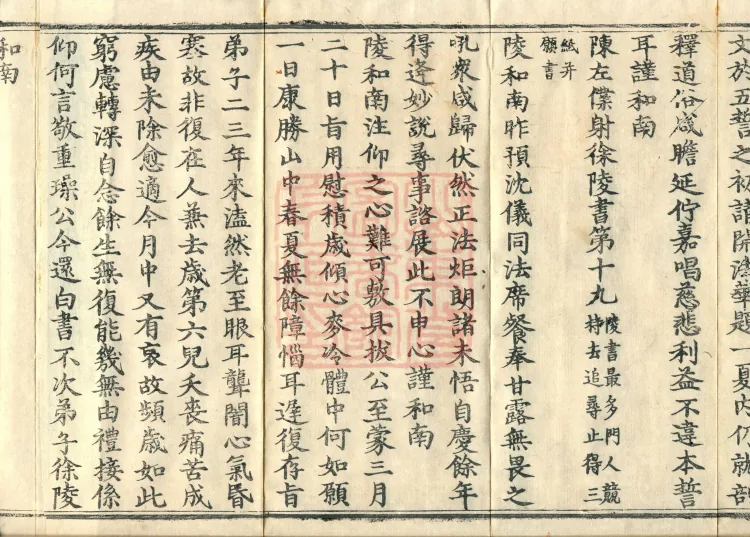 文於五誓之初請開法華題一夏內仍就剖
釋道俗咸瞻延佇嘉唱慈悲利益不違本誓
耳謹和南
陳左僕射徐陵書第十九
陵書最多門人競
持去追尋止得三
紙并
願書
陵和南昨預沈儀同法席飡奉甘露無畏之
吼眾咸歸伏然正法炬朗諸未悟自慶餘年
得逢妙說尋事諮展此不申心謹和南
陵和南注仰之心難可敷具拔公至蒙三月
二十日旨用慰積歲傾心麥冷體中何如願
一日康勝山中春夏無餘障惱耳遲復存旨
弟子二三年來溘然老至眼耳聾闇心氣昏
塞故非復在人兼去歲第六兒夭喪痛苦成
疾由未除愈適今月中又有哀故頻歲如此
窮慮轉深自念餘生無復能幾無由禮接係
仰何言敬重璪公今還白書不次弟子徐陵
和南